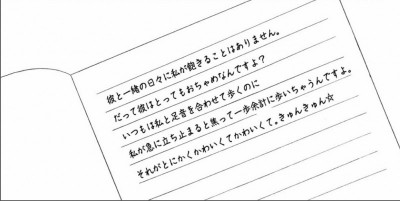 彼と一緒の日々に私が飽きることはありません。
だって彼はとってもおちゃめなんですよ？
いつもは私と足音を合わせて歩くのに
私が急に立ち止まると焦って一歩余計に歩いちゃうんですよ。
それがとにかくかわいくてかわいくて。きゅんきゅん☆